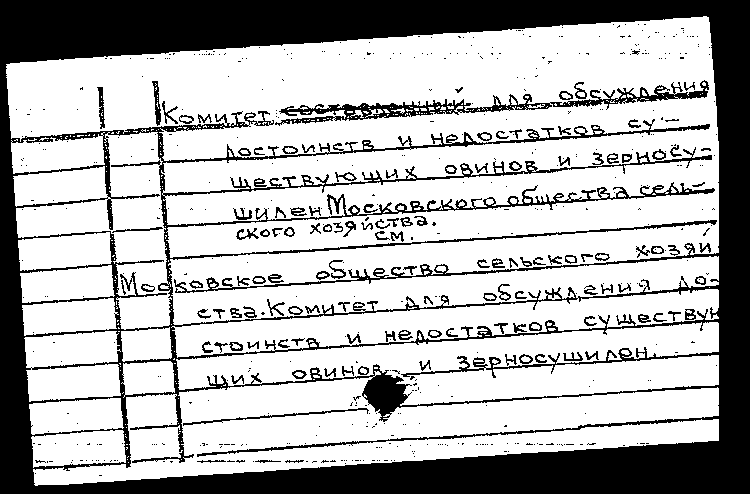 Комитет составленный для обсуждения
достоинств и недостатков су-
ществующих овинов и зерносу-
шилен Московского общества сель-
ского хозяйства.
см.
Московское общество сельского хозяй
ства. Комитет для обсуждения до-
стоинств и недостатков существую
щих овинов и зерносушилен.